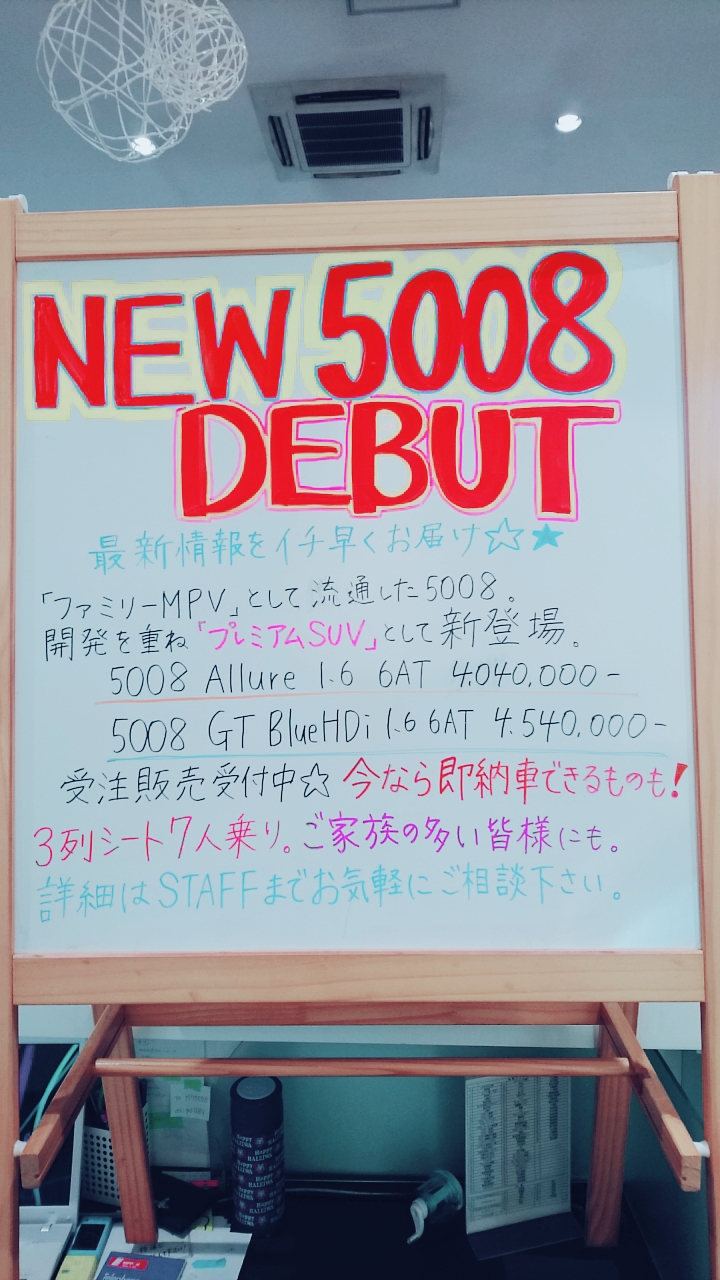 NEW 5008
DEBUT
最新情報をイチ早くお届け☆★
「ファミリーMPV」として流通した5008。
開発を重ね「プレミアムSUV」として新登場。
5008 Allure 1.6 6AT 4.040.000-
5008 GT BlueHDi 1.6 6AT 4.540.000-
受注販売受付中☆ 今なら即納車できるものも!
3列シート7人乗り。ご家族の多い皆様にも。
詳細はSTAFFまでお気軽にご相談下さい。
HAPPY
HALEIWA